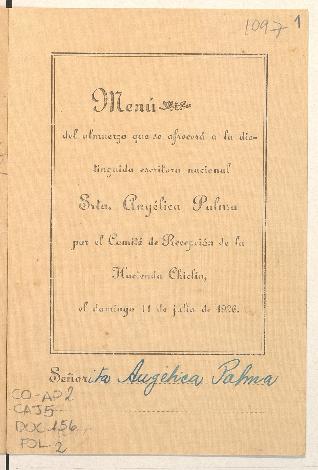 1097 1
Menú
del almuerzo que se ofrecerá a la dis-
tinguida escritora nacional
Srta. Angélica Palma
por el Comité de Recepción de la
Hacienda Chiclín,
el domingo 11 de julio de 1926.
Señorita Angélica Palma
CO-AP2
CAJ5
DOC.156
FOL. 2